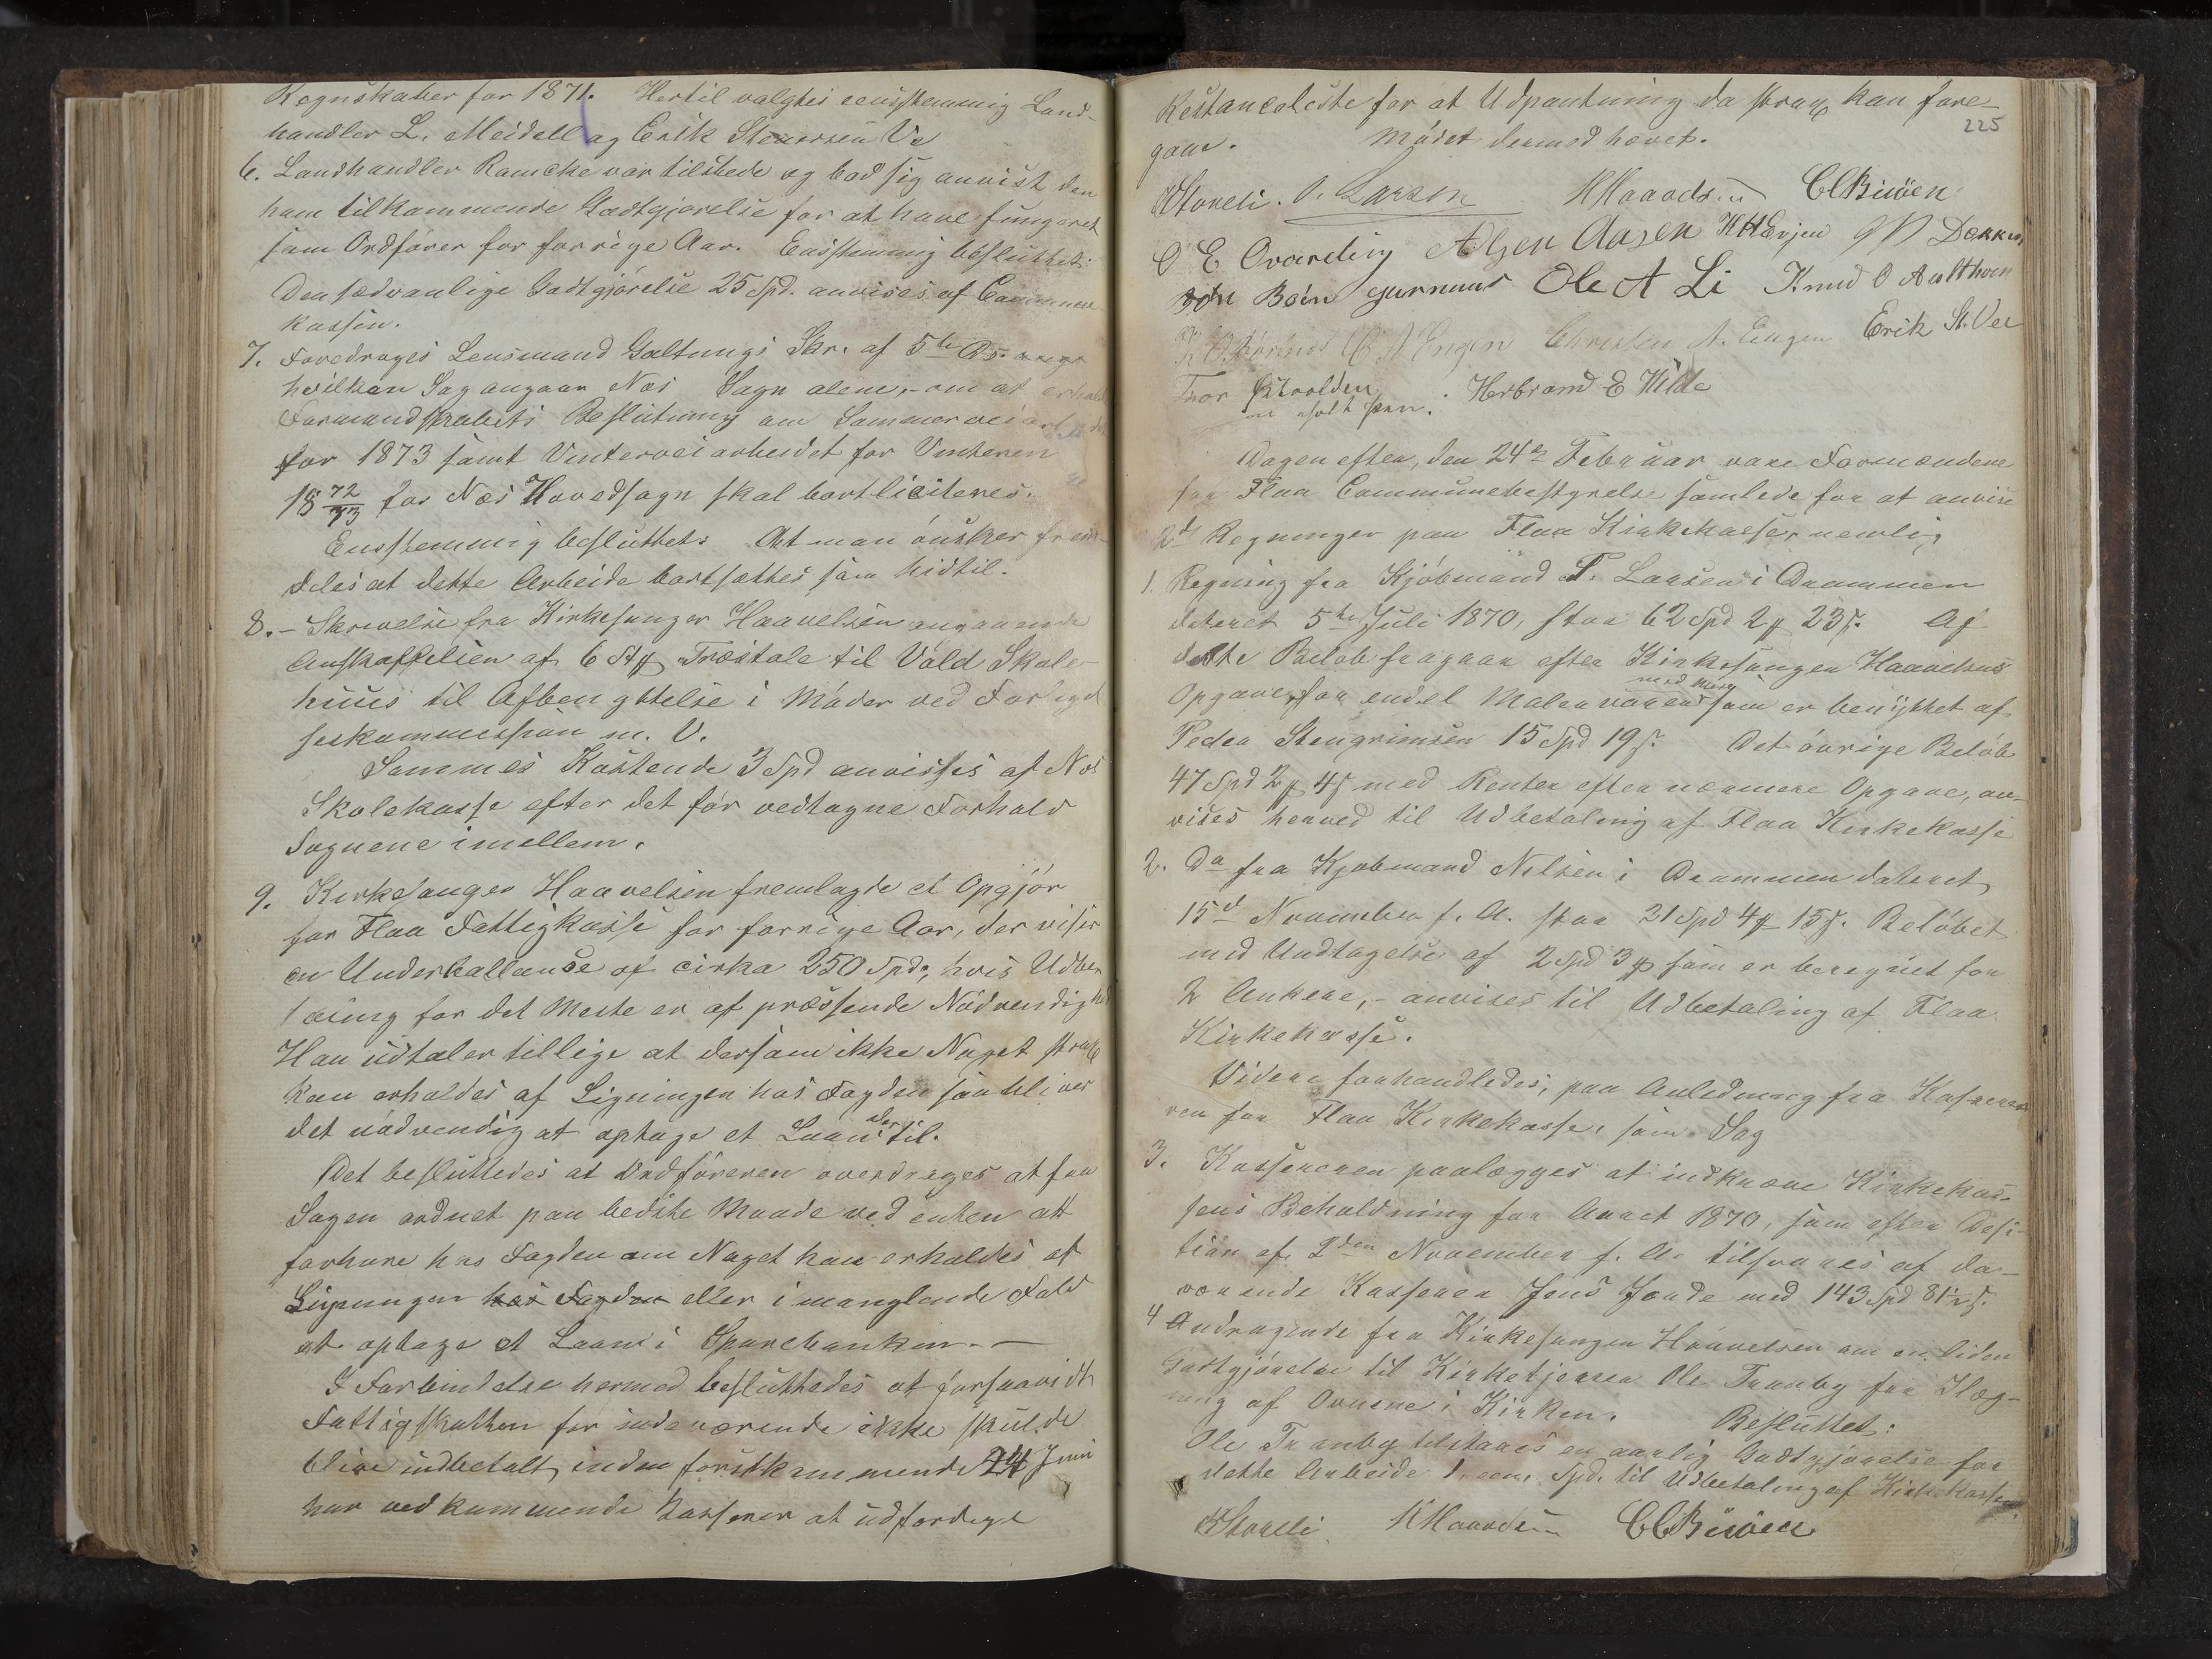 Regnskaber for 1871. Hertil valgtes eensstemmig Land-
handler L. Meidell og Erik
6. Landhandler Ramcke var tilstede og bad sig anvist den
ham tilkommende Godtgjørelse for at have fungeret
som Ordfører for forrige Aar. Eensstemmig besluttet:
Den sædvanlige Godtgjørelse 25 Spd. anvises af Commune
kassen.
7. Foredroges Lensmand Galtungs Skr. af 5te Ds.
hvilken Sag angaar Næs Sogn alene, - om at
Formandskabets Beslutning om Sommerveiarbeidet
for 1873 samt Vinterveiarbeidet for Vinteren
18 72/73 for Næs Hovedsogn skal bortliciteres.
Eensstemmig besluttet: At man ønsker frem-
deles at dette Arbeide bortsættes som hidtil.
8. - Skrivelse fra Kirkesanger Haavelsen angaaende
Anskaffelsen af 6 Stkr Træstole til Vold Skole-
huus til Afbenyttelse i Møder ved Forligel
seskommission m. V.
Sammes Kostende 3 Spd anvises af Næs
Skolekasse efter det før vedtagne Forhold
Sognene imellem.
9. Kirkesanger Haavelsen fremlagde et Opgjør
for Flaa Fattigkasse for forrige Aar, der viser
en Underballance af cirka 250 Spd, hvis Udbe
taling for det Meste er af pressende Nødvendighed
Han udtaler tillige at dersom ikke Noget strax
kan erholdes af Ligningen hos Fogden saa bliver
det nødvendig at optage et Laan dertil.
Det besluttedes at Ordføreren overdrages at faa
Sagen ordnet paa bedste Maade ved enten at
forhøre hos Fogden om Noget kan erholdes af
Ligningen hos Fogden eller i manglende Fald
at optage et Laan i Sparebanken. -
I Forbindelse hermed besluttedes at forsaavidt
Fattigskatten for indeværende ikke skulde
blive indbetalt inden førstkommende 24 Juni
har vedkommende Kasserer at udfærdige
225
Restanceliste for at Udpantning da strax kan fore-
gaae. Mødet dermed hævet.
Storeli. O. Larsen HHaavdsen CCBüöen
O E Ovarding A Olsen Aasen KHErjen
Ole A Li Knud O
C A Engen Christen A. Engen Erik St. Vee
Tor
m holt pen. Herbrand E Hilde
Dagen efter, den 24de Februar vare Formændene
for Flaa Communebestyrelse samlede for at anvise
2de Regninger paa Flaa Kirkekasse, nemlig
1. Regning fra Kjøbmand T. Larsen i Drammen
dateret 5te Juli 1870, stor 62 Spd 2 ₰ 23 s. Af
dette Beløb fragaar efter Kirkesanger Haavelsens
Opgave, for endel Malervarer med mere som er benyttet af
Peder Stengrimsen 15 Spd 19 s. Det øvrige Beløb
47 Spd 2 ₰ 4 s med Renter efter nærmere Opgave, an-
vises herved til Udbetaling af Flaa Kirkekasse
2. Do fra Kjøbmand Nilsen i Drammen dateret
15de November f. A. stor 21 Spd 4 ₰ 15 s. Beløbet
med Undtagelse af 2 Spd 3 ₰ som er beregnet for
2 Ankere, - anvises til Udbetaling af Flaa
Kirkekasse.
Videre forhandledes, paa Anledning fra Kassere
ren for Flaa Kirkekasse, som Sag
3. Kassereren paalægges at indkræve Kirkekas-
sens Beholdning for Aaret 1870, som efter Desi-
tion af 2den November f. A. tilsvares af da-
værende Kasserer Jens Jorde med 143 Spd 81 1/2 s.
4 Andragende fra Kirkesanger Haavelsen om en liden
Godtgjørelse til Kirketjener Ole Tranby for Ilæg-
ning af Ovnene i Kirken. Besluttet:
Ole Tranby tilstaaes en aarlig Godtgjørelse for
dette Arbeide 1, een, Spd. til Udbetaling af Kirkekassen
Storeli HHaavdsen CCBüöen